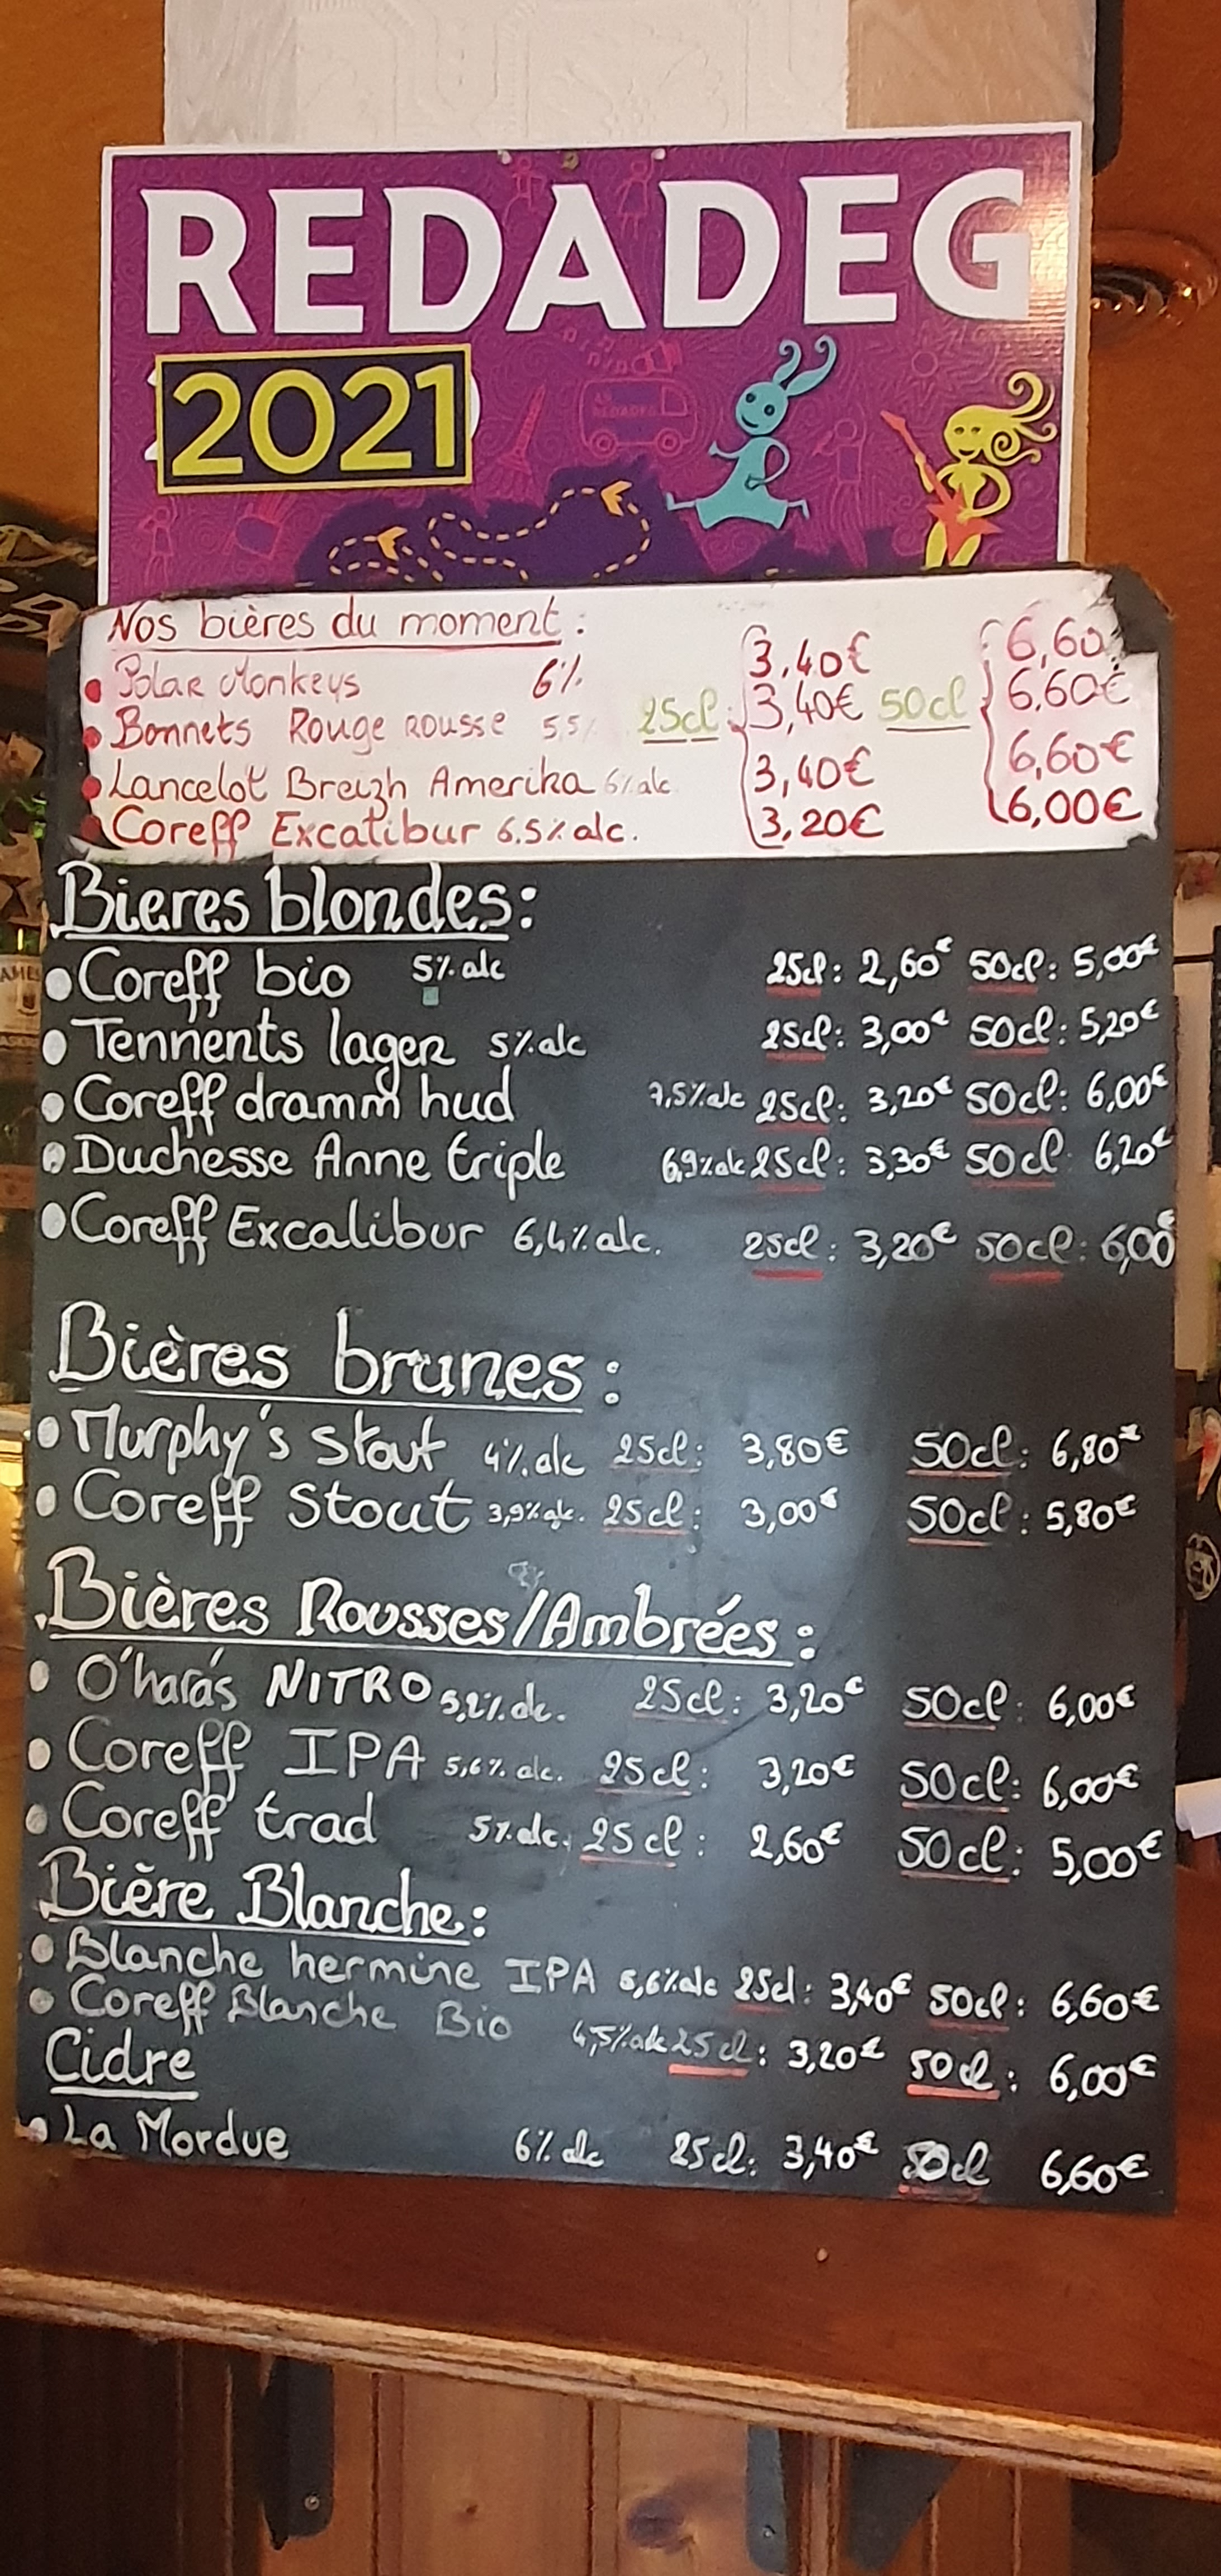 REDADEG
2021
Nos bières du moment :
• Polar Monkeys 6% 25cl : 3,40€ 50cl 6,60
• Bonnets Rouge Rousse 5,5% 3,40€ 6,60€
• Lancelot Breizh Amerika 6% alc 3,40€ 6,60€
• Coreff Excalibur 6.5% alc. 3,20€ 6,00€
Bieres blondes :
• Coreff bio 5% alc 25cl : 2,60€ 50cl : 5,00€
• Tennents lager 5% alc 25cl : 3,00€ 50cl : 5,20€
• Coreff dramm hud 7,5% alc 25cl : 3,20€ 50cl : 6,00€
• Duchesse Anne triple 6,9% alc 25cl : 3,30€ 50cl : 6,20€
• Coreff Excalibur 6,4% alc. 25cl : 3,20€ 50cl : 6,00€
Bières brunes :
• Murphy's Stout 4% alc 25cl : 3,80€ 50cl : 6,80€
• Coreff Stout 3,9% alc. 25cl : 3,00€ 50cl : 5,80€
Bières Rousses/Ambrées :
• O'hara's NITRO 5,2% alc. 25cl : 3,20€ 50cl : 6,00€
• Coreff IPA 5,6% alc. 25cl : 3,20€ 50cl : 6,00€
• Coreff trad 5% alc. 25cl : 2,60€ 50cl : 5,00€
Bière Blanche :
• Blanche hermine IPA 5,6% alc 25cl : 3,40€ 50cl : 6,60€
• Coreff Blanche Bio 4,5% alc 25cl : 3,20€ 50cl : 6,00€
Cidre
• La Mordue 6% alc 25cl : 3,40€ 50cl 6,60€